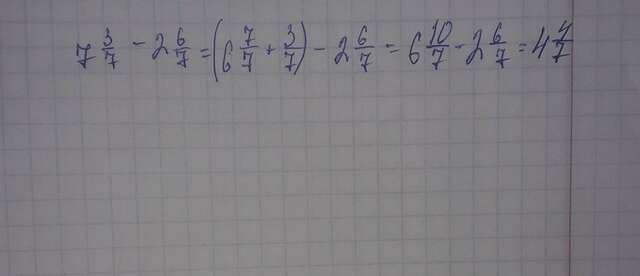 7 3/7 - 2 6/7 = (6 7/7 + 3/7) - 2 6/7 = 6 10/7 - 2 6/7 = 4 4/7